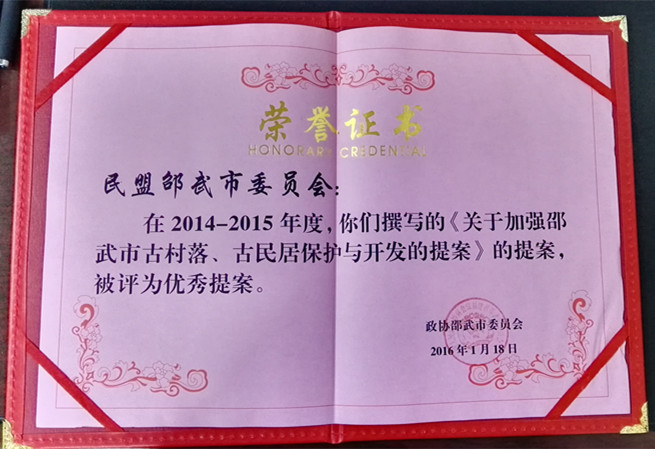 荣誉证书
HONORARY CREDENTIAL
民盟邵武市委员会：
在 2014-2015 年度，你们撰写的《关于加强邵
武市古村落、古民居保护与开发的提案》的提案，
被评为优秀提案。
政协邵武市委员会
2016 年 1 月 18 日